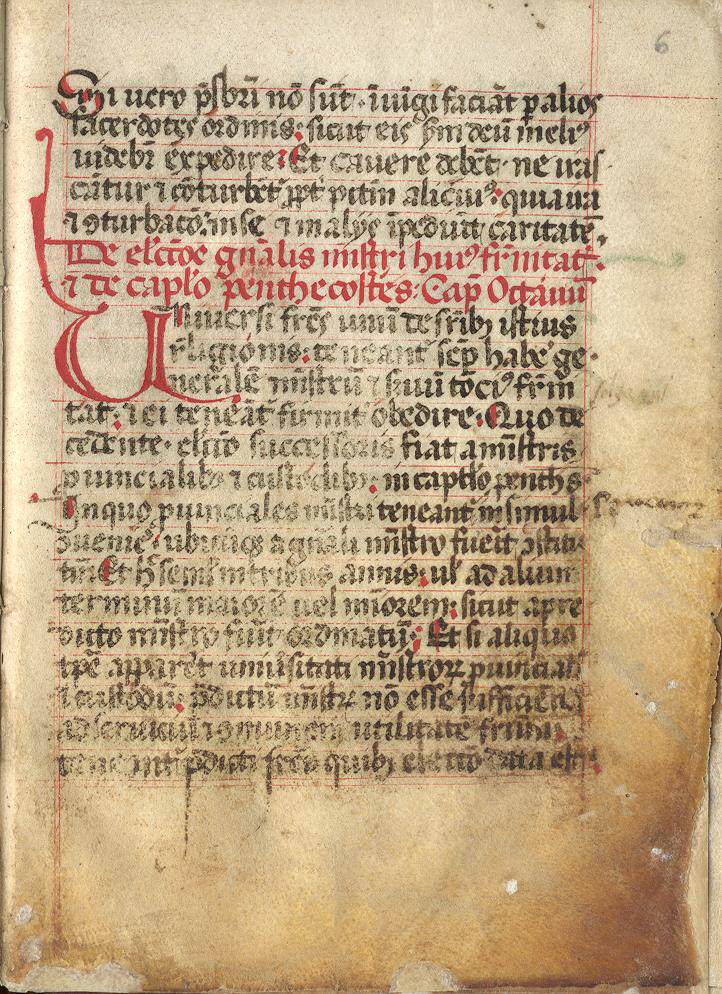 6
Si vero p̄sb̄ri nō sūt · iniūgi faciāt p alios
sacerdotes ordinis: sicut eis s̄m deū meliꝰ
videbr̄ expedire: Et cavere debēt · ne iras
cātur ⁊ cōturbēt̄ ꝓpt̄ p̄ctm̄ alicuiꝰ: quia ira
⁊ ꝯturbacō: in se ⁊ in alijs īpediūt caritatē.
De elc̄tōe gn̄alis mīstri huiꝰ frn̄itat̄:
⁊ de cap̄lo penthecostes: Cap̄ Octauū
Universi frēs unū de frībꝫ istius
religionis: teneant̄ sēp habe ge
neralē mīstrū ⁊ s̄ruū tociꝰ frn̄i
tat̄: ⁊ ei teneāt̄ firmit̄ obedire. Quo de
cedente · elc̄tio successoris fiat a mīstris
ꝓuincialibꝫ ⁊ custodibꝫ: in cap̄tlo penthꝭ
In quo ꝓuinciales mīstri teneant̄ insimul
ꝯuenire · ubicūqꝫ a gn̄ali mīstro fuerit ꝯstitu
tū: Et h̄ semel in tribus annis: ul̄ ad aliū
terminū maiorē uel mīorem: sicut a pre
dicto mīstro fuīt ordinatū: Et si aliquo
tp̄e apparet̄ uniuersitati mīstroꝝ ꝓuincial̄
⁊ custodū: p̄dictū mīstꝝ nō esse sufficiētē
ad seruiciū ⁊ ꝯmunem utilitatē frm̄:
teneant̄ p̄dicti frēs quibꝫ electio data est: